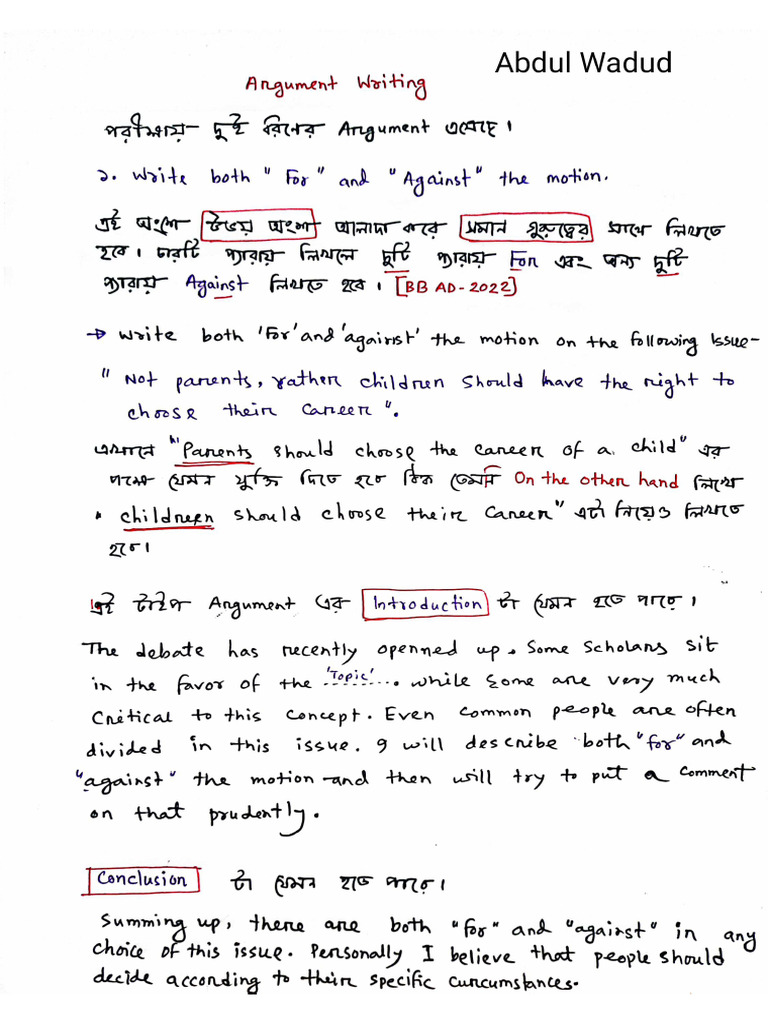 Abdul Wadud
Argument Writing
পরীক্ষায় দুই ধরনের Argument এসেছে।
১. Write both "For" and "Against" the motion.
এই অংশে উভয় অংশ আলাদা করে সমান গুরুত্বের সাথে লিখতে
হবে। চারটি প্যারায় লিখলে দুটি প্যারায় For এবং অন্য দুটি
প্যারায় Against লিখতে হবে। [BB AD-2022]
→ Write both 'For' and 'against' the motion on the following Issue-
" Not parents, rather children should have the right to
choose their career ".
এখানে "Parents should choose the career of a child" এর
পক্ষে যেমন যুক্তি দিতে হবে ঠিক তেমনি On the other hand লিখে
" children should choose their career" এটা নিয়েও লিখতে
হবে।
এই টাইপ Argument এর Introduction টা যেমন হতে পারে।
The debate has recently openned up. Some Scholars sit
in the favor of the 'Topic'.... while some are very much
Critical to this concept. Even common people are often
divided in this issue. I will describe both "for" and
"against" the motion and then will try to put a comment
on that prudently.
Conclusion টা যেমন হতে পারে।
Summing up, there are both "for" and "against" in any
choice of this issue. Personally I believe that people should
decide according to their specific curcumstances.